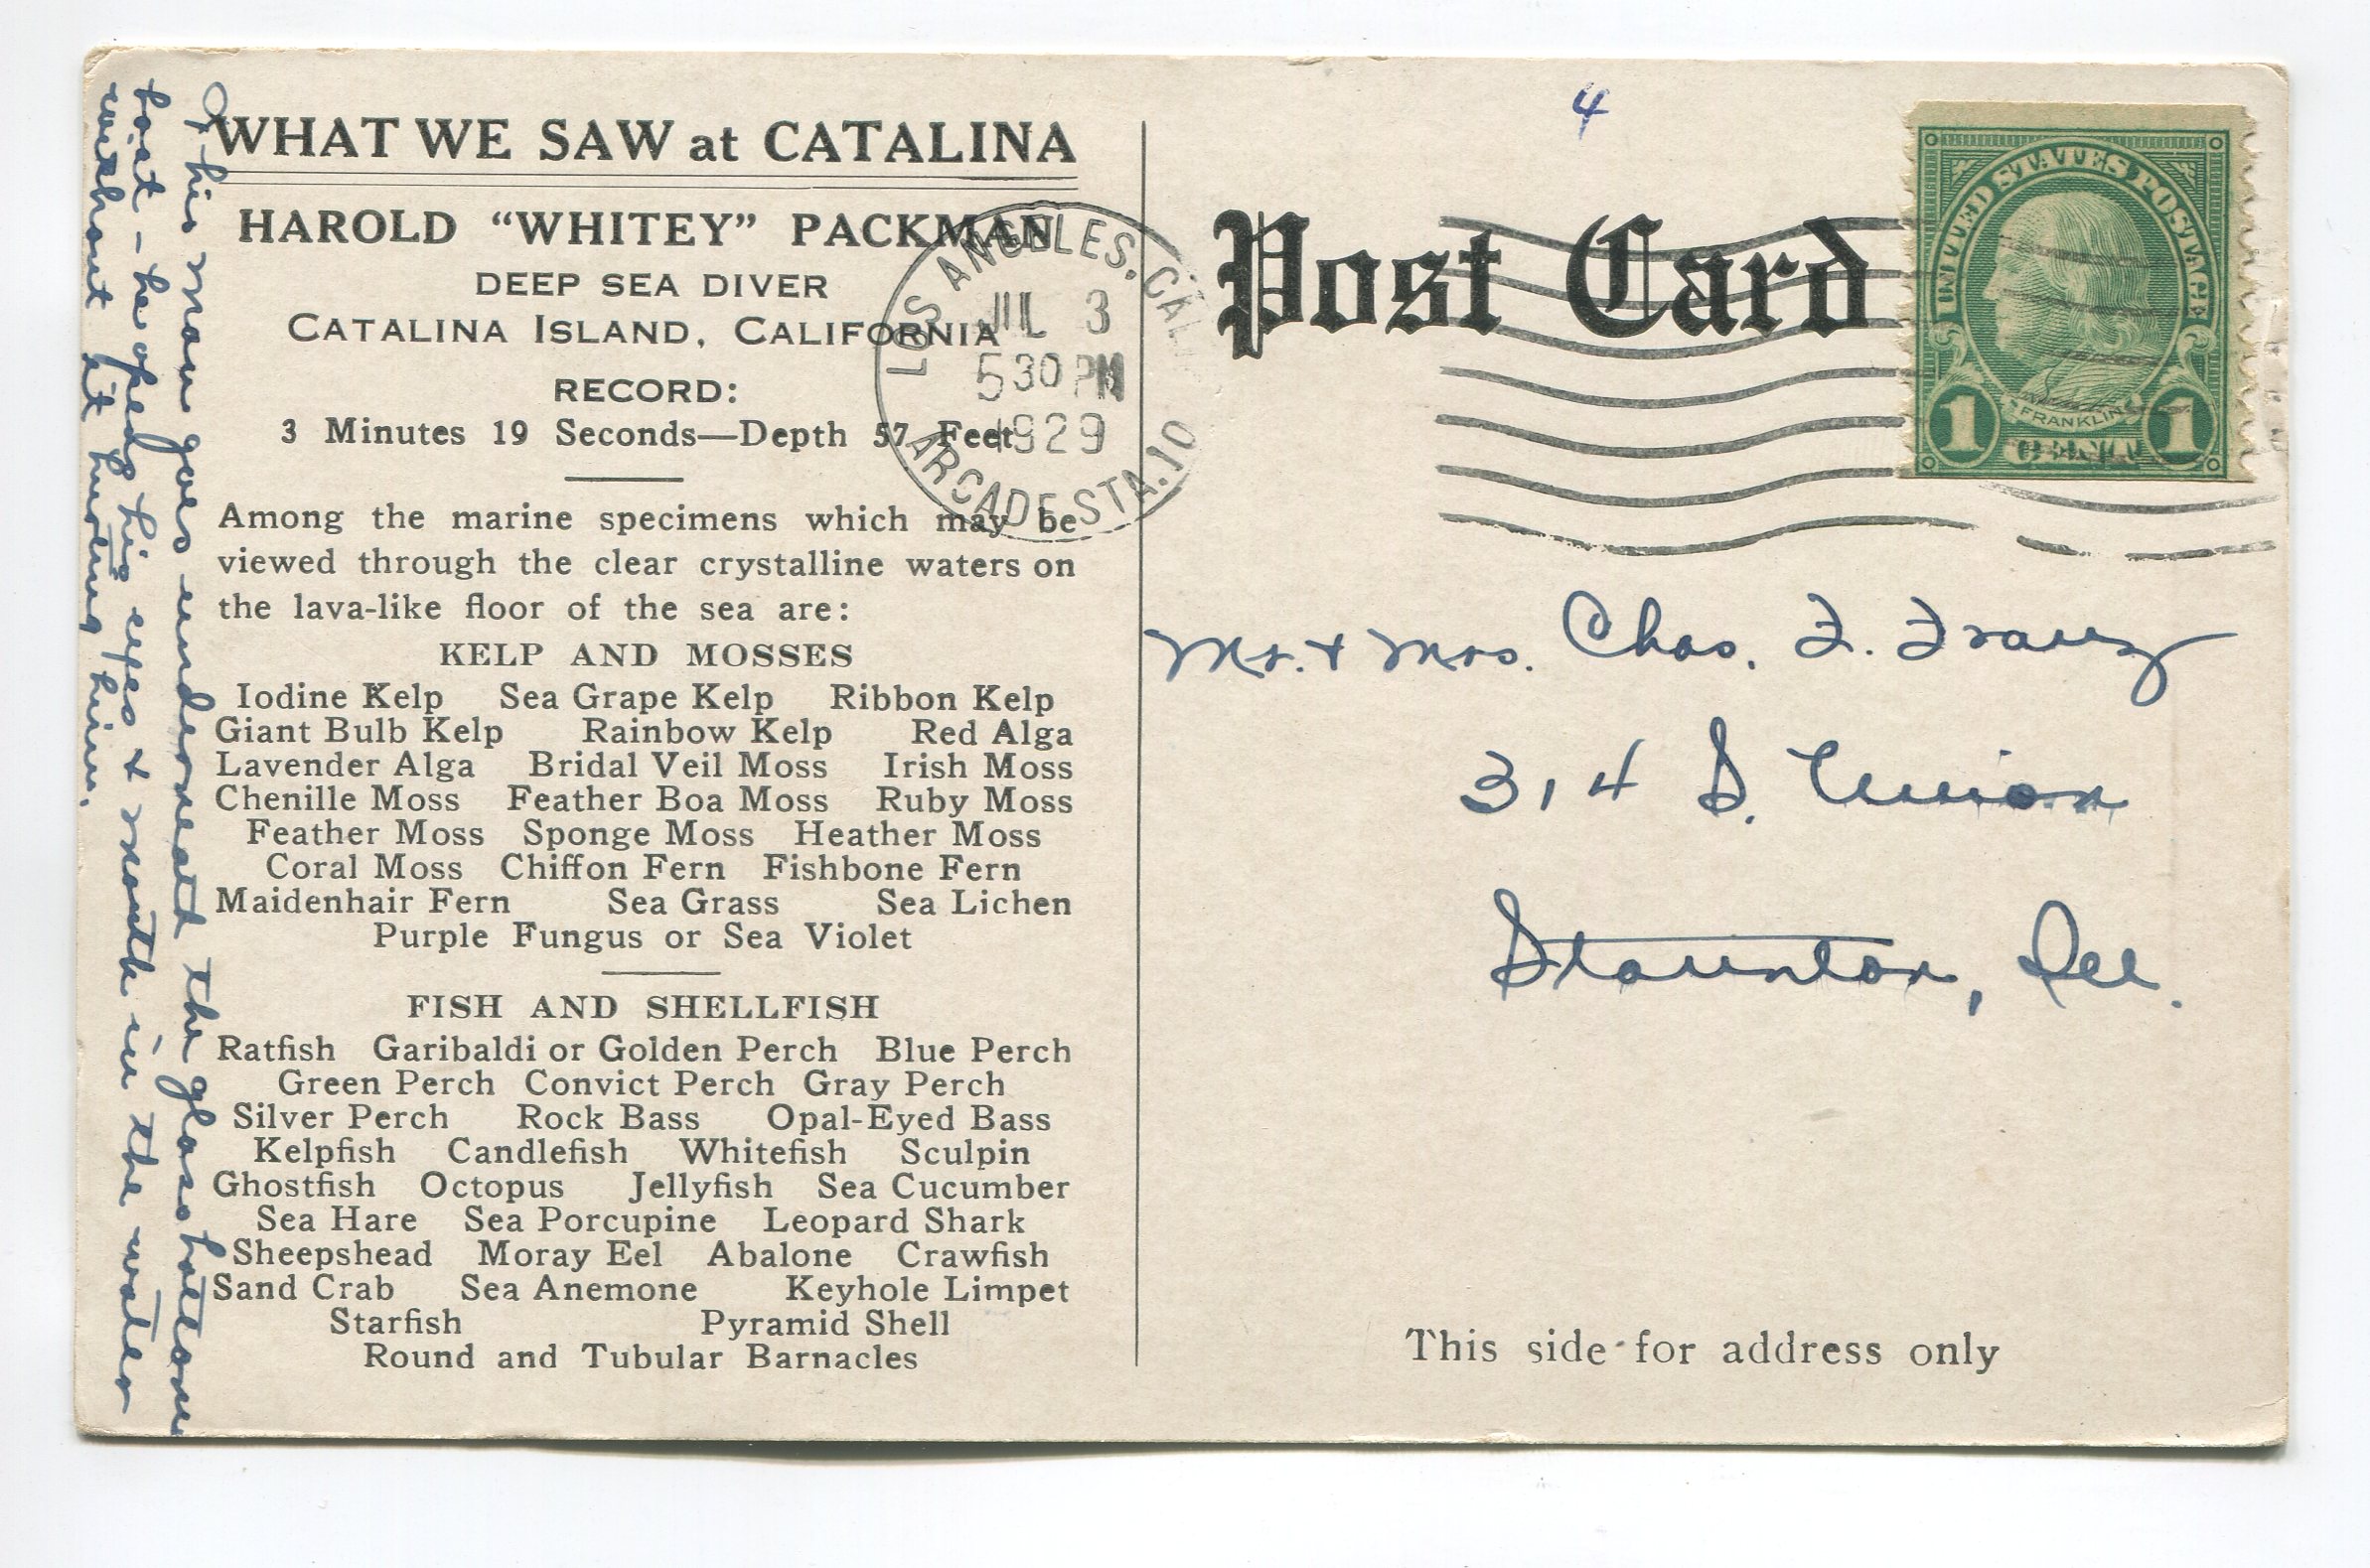 This man goes underneath the glass bottom
boat - he opens his eyes & mouth in the water
without it hurting him.
WHAT WE SAW at CATALINA
HAROLD “WHITEY” PACKMAN
DEEP SEA DIVER
CATALINA ISLAND, CALIFORNIA
RECORD:
3 Minutes 19 Seconds—Depth 57 Feet
Among the marine specimens which may be
viewed through the clear crystalline waters on
the lava-like floor of the sea are:
KELP AND MOSSES
Iodine Kelp Sea Grape Kelp Ribbon Kelp
Giant Bulb Kelp Rainbow Kelp Red Alga
Lavender Alga Bridal Veil Moss Irish Moss
Chenille Moss Feather Boa Moss Ruby Moss
Feather Moss Sponge Moss Heather Moss
Coral Moss Chiffon Fern Fishbone Fern
Maidenhair Fern Sea Grass Sea Lichen
Purple Fungus or Sea Violet
FISH AND SHELLFISH
Ratfish Garibaldi or Golden Perch Blue Perch
Green Perch Convict Perch Gray Perch
Silver Perch Rock Bass Opal-Eyed Bass
Kelpfish Candlefish Whitefish Sculpin
Ghostfish Octopus Jellyfish Sea Cucumber
Sea Hare Sea Porcupine Leopard Shark
Sheepshead Moray Eel Abalone Crawfish
Sand Crab Sea Anemone Keyhole Limpet
Starfish Pyramid Shell
Round and Tubular Barnacles
LOS ANGELES, CAL
JUL 3
530 PM
1929
ARCADE STA. 10
4
Post Card
UNITED STATES POSTAGE
FRANKLIN
1 CENT 1
Mr. & Mrs. Chas. F. Franz
314 S. Union
Staunton, Ill.
This side for address only